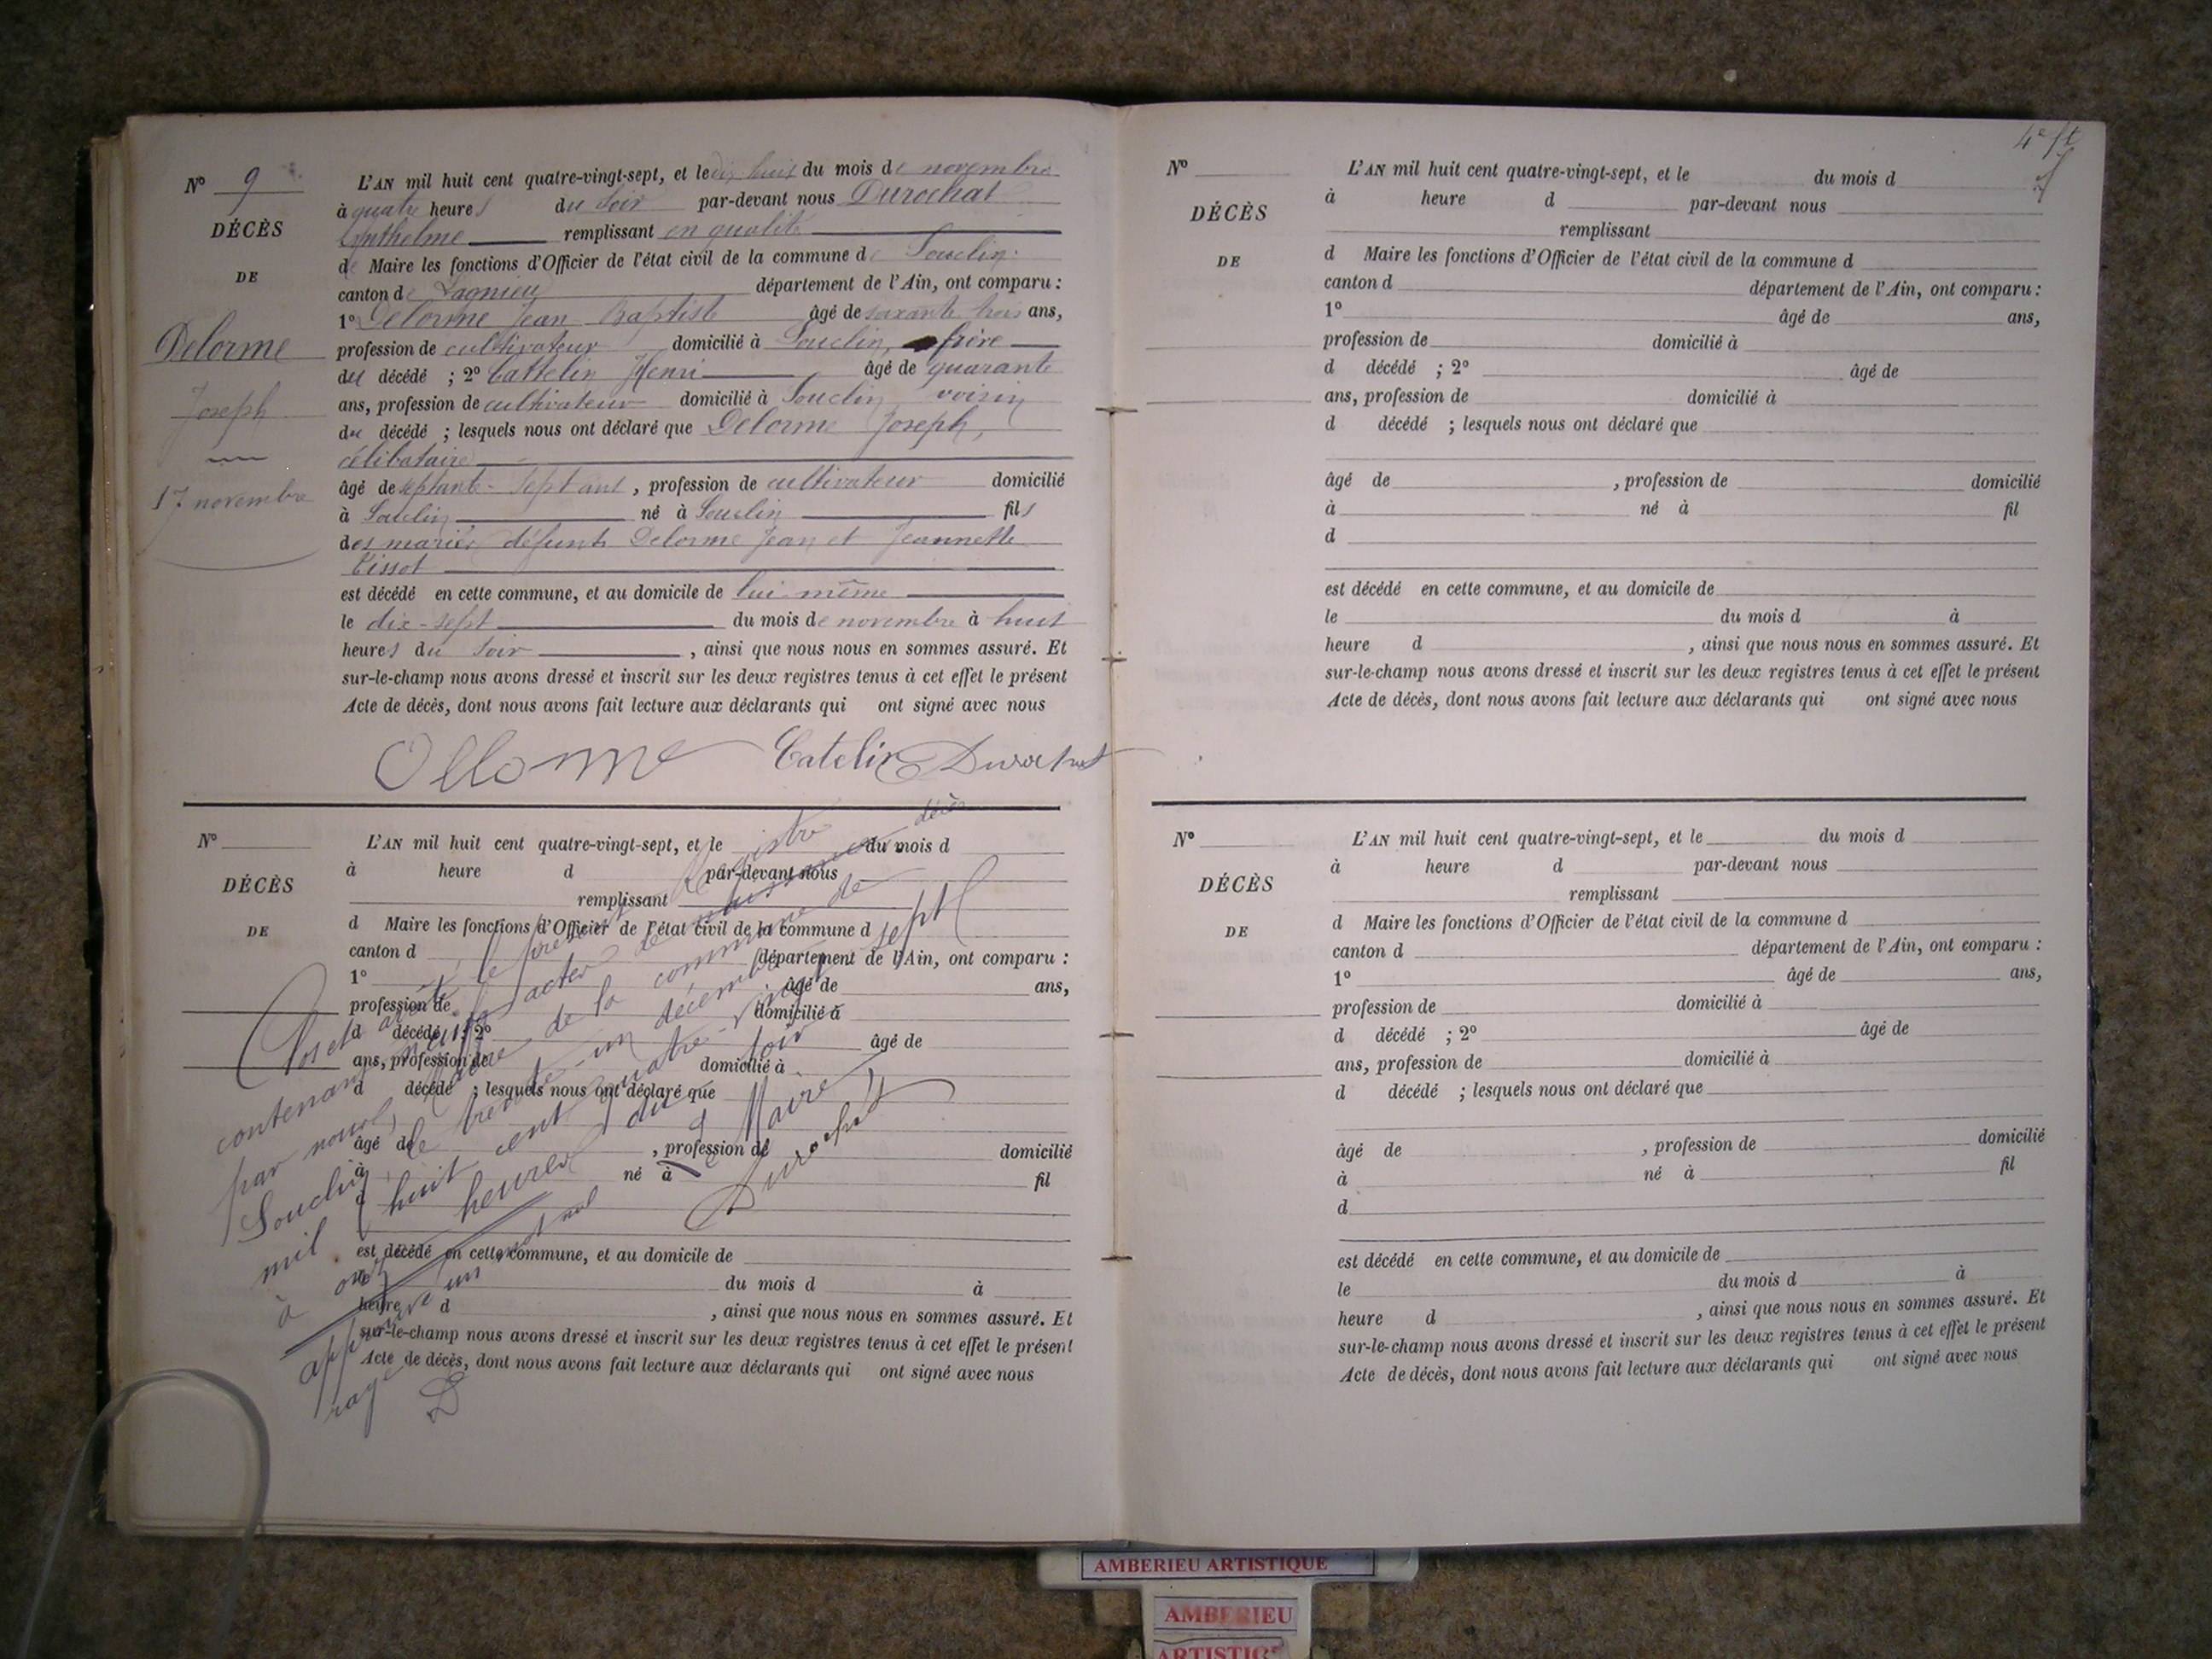 Nº 9
DÉCÈS
DE
Delorme
Joseph
17 novembre
L'AN mil huit cent quatre-vingt-sept, et le dix huit du mois de novembre
à quatre heures du soir par-devant nous Durochat
Anthelme remplissant en qualité
de Maire les fonctions d'Officier de l'état civil de la commune de Souclin
canton de Lagnieu département de l'Ain, ont comparu :
1º Delorme Jean Baptiste âgé de soixante trois ans,
profession de cultivateur domicilié à Souclin, frère
du décédé ; 2º Cattelin Henri âgé de quarante
ans, profession de cultivateur domicilié à Souclin voisin
du décédé ; lesquels nous ont déclaré que Delorme Joseph,
célibataire
âgé de septante-sept ans, profession de cultivateur domicilié
à Souclin né à Souclin fils
des mariés défunts Delorme Jean et Jeannette
Tissot
est décédé en cette commune, et au domicile de lui-même
le dix-sept du mois de novembre à huit
heures du soir, ainsi que nous nous en sommes assuré. Et
sur-le-champ nous avons dressé et inscrit sur les deux registres tenus à cet effet le présent
Acte de décès, dont nous avons fait lecture aux déclarants qui ont signé avec nous
Catelin Durochat
Nº
DÉCÈS
DE
L'AN mil huit cent quatre-vingt-sept, et le du mois d
à heure d par-devant nous
remplissant
d Maire les fonctions d'Officier de l'état civil de la commune d
canton d département de l'Ain, ont comparu :
1º âgé de ans,
profession de domicilié à
d décédé ; 2º âgé de
ans, profession de domicilié à
d décédé ; lesquels nous ont déclaré que
âgé de , profession de domicilié
à né à fil
d
est décédé en cette commune, et au domicile de
le du mois d à
heure d , ainsi que nous nous en sommes assuré. Et
sur-le-champ nous avons dressé et inscrit sur les deux registres tenus à cet effet le présent
Acte de décès, dont nous avons fait lecture aux déclarants qui ont signé avec nous
Clos et arrêté le présent Registre
contenant neuf actes de naissance décès
par nous, Maire de la commune de
Souclin, le trente-un décembre
mil huit cent quatre-vingt sept
à onze heures du soir
Le Maire
Durochat
approuvé un mot nul
rayé
D
4e ft
Nº
DÉCÈS
DE
L'AN mil huit cent quatre-vingt-sept, et le du mois d
à heure d par-devant nous
remplissant
d Maire les fonctions d'Officier de l'état civil de la commune d
canton d département de l'Ain, ont comparu :
1º âgé de ans,
profession de domicilié à
d décédé ; 2º âgé de
ans, profession de domicilié à
d décédé ; lesquels nous ont déclaré que
âgé de , profession de domicilié
à né à fil
d
est décédé en cette commune, et au domicile de
le du mois d à
heure d , ainsi que nous nous en sommes assuré. Et
sur-le-champ nous avons dressé et inscrit sur les deux registres tenus à cet effet le présent
Acte de décès, dont nous avons fait lecture aux déclarants qui ont signé avec nous
Nº
DÉCÈS
DE
L'AN mil huit cent quatre-vingt-sept, et le du mois d
à heure d par-devant nous
remplissant
d Maire les fonctions d'Officier de l'état civil de la commune d
canton d département de l'Ain, ont comparu :
1º âgé de ans,
profession de domicilié à
d décédé ; 2º âgé de
ans, profession de domicilié à
d décédé ; lesquels nous ont déclaré que
âgé de , profession de domicilié
à né à fil
d
est décédé en cette commune, et au domicile de
le du mois d à
heure d , ainsi que nous nous en sommes assuré. Et
sur-le-champ nous avons dressé et inscrit sur les deux registres tenus à cet effet le présent
Acte de décès, dont nous avons fait lecture aux déclarants qui ont signé avec nous
AMBERIEU ARTISTIQUE
AMBERIEU